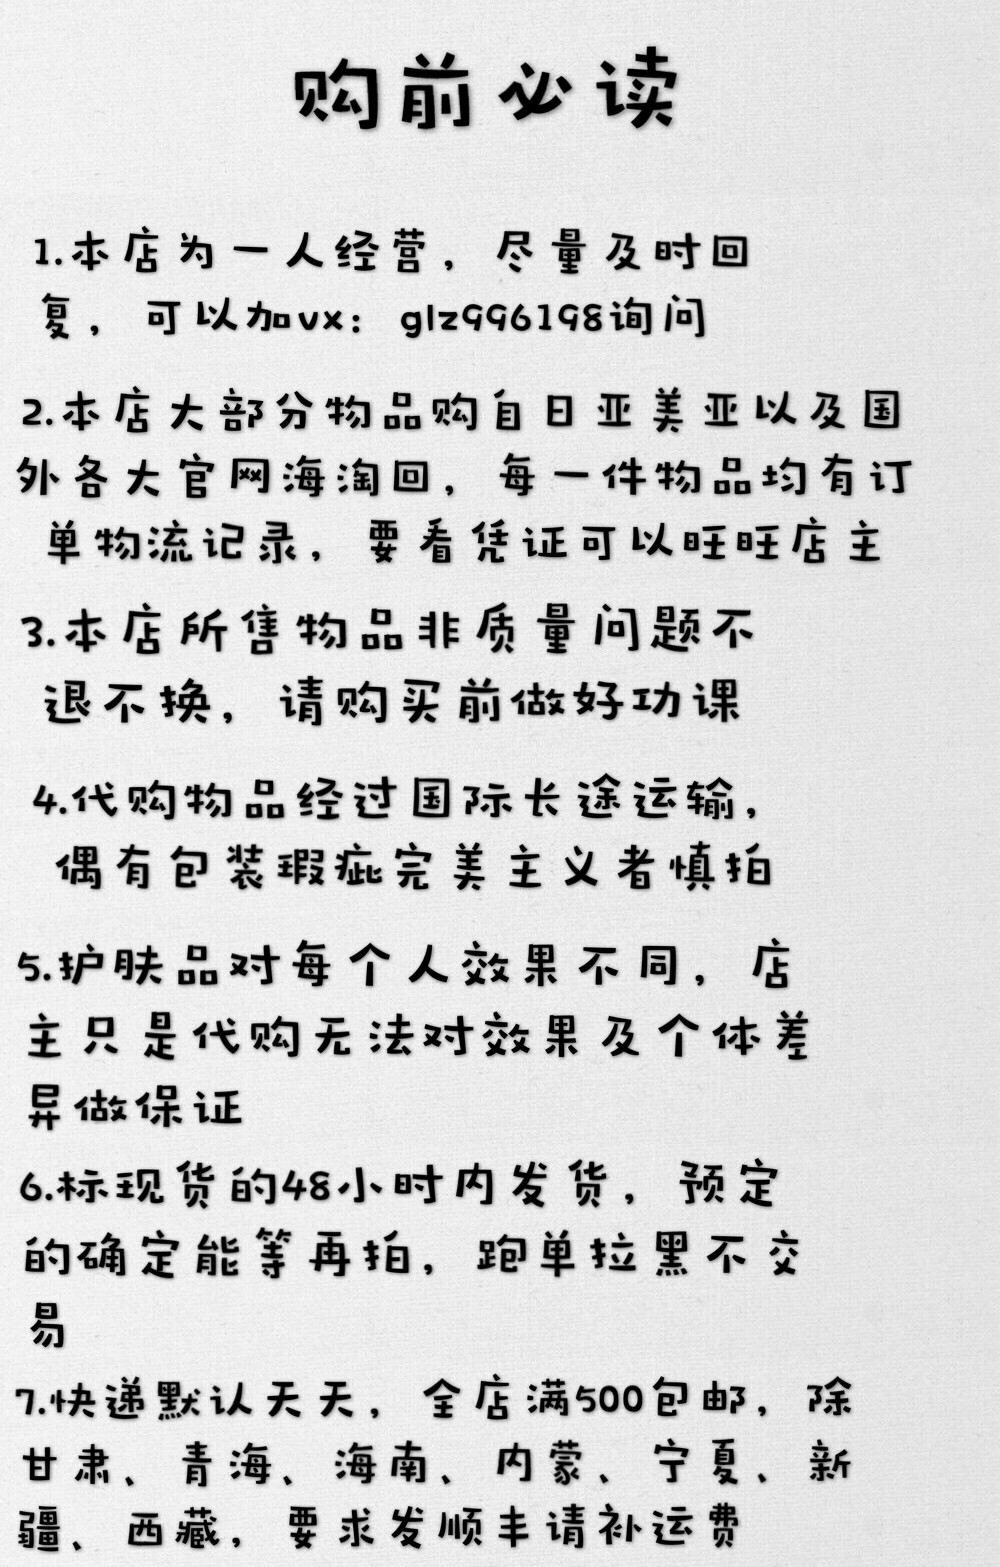 购前必读
1.本店为一人经营，尽量及时回
复，可以加vx：glz996198询问
2.本店大部分物品购自日亚美亚以及国
外各大官网海淘回，每一件物品均有订
单物流记录，要看凭证可以旺旺店主
3.本店所售物品非质量问题不
退不换，请购买前做好功课
4.代购物品经过国际长途运输，
偶有包装瑕疵完美主义者慎拍
5.护肤品对每个人效果不同，店
主只是代购无法对效果及个体差
异做保证
6.标现货的48小时内发货，预定
的确定能等再拍，跑单拉黑不交
易
7.快递默认天天，全店满500包邮，除
甘肃、青海、海南、内蒙、宁夏、新
疆、西藏，要求发顺丰请补运费